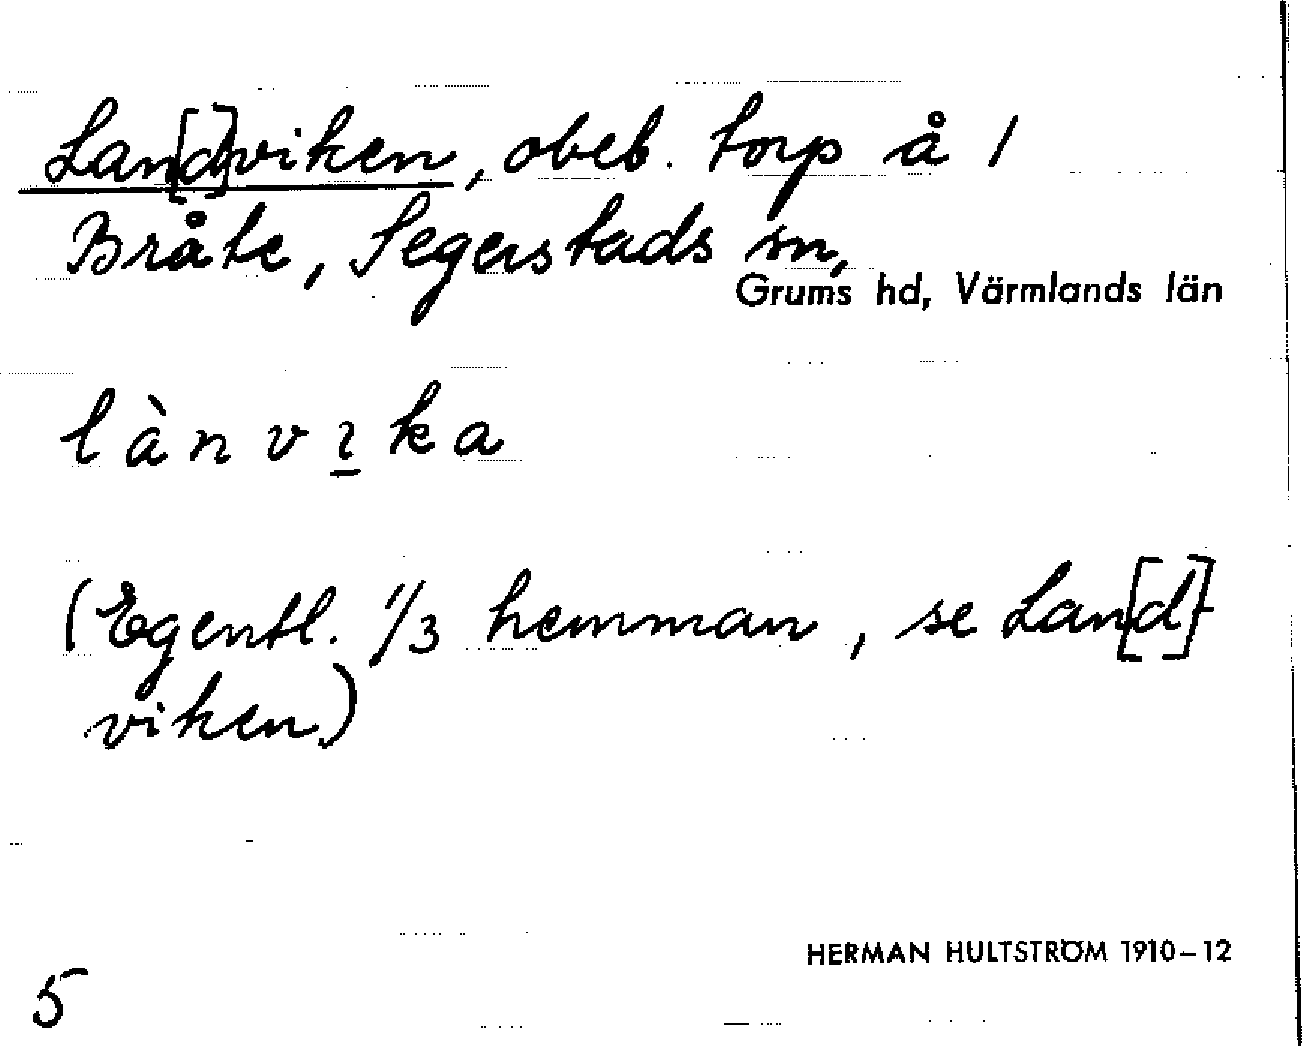 Lan[d]viken, obeb. torp å 1
Bråte, Segerstads sn,
Grums hd, Värmlands län
lànvıka
(Egentl. 1/3 hemman, se Lan[d]-
viken.)
HERMAN HULTSTRÖM 1910–12
5